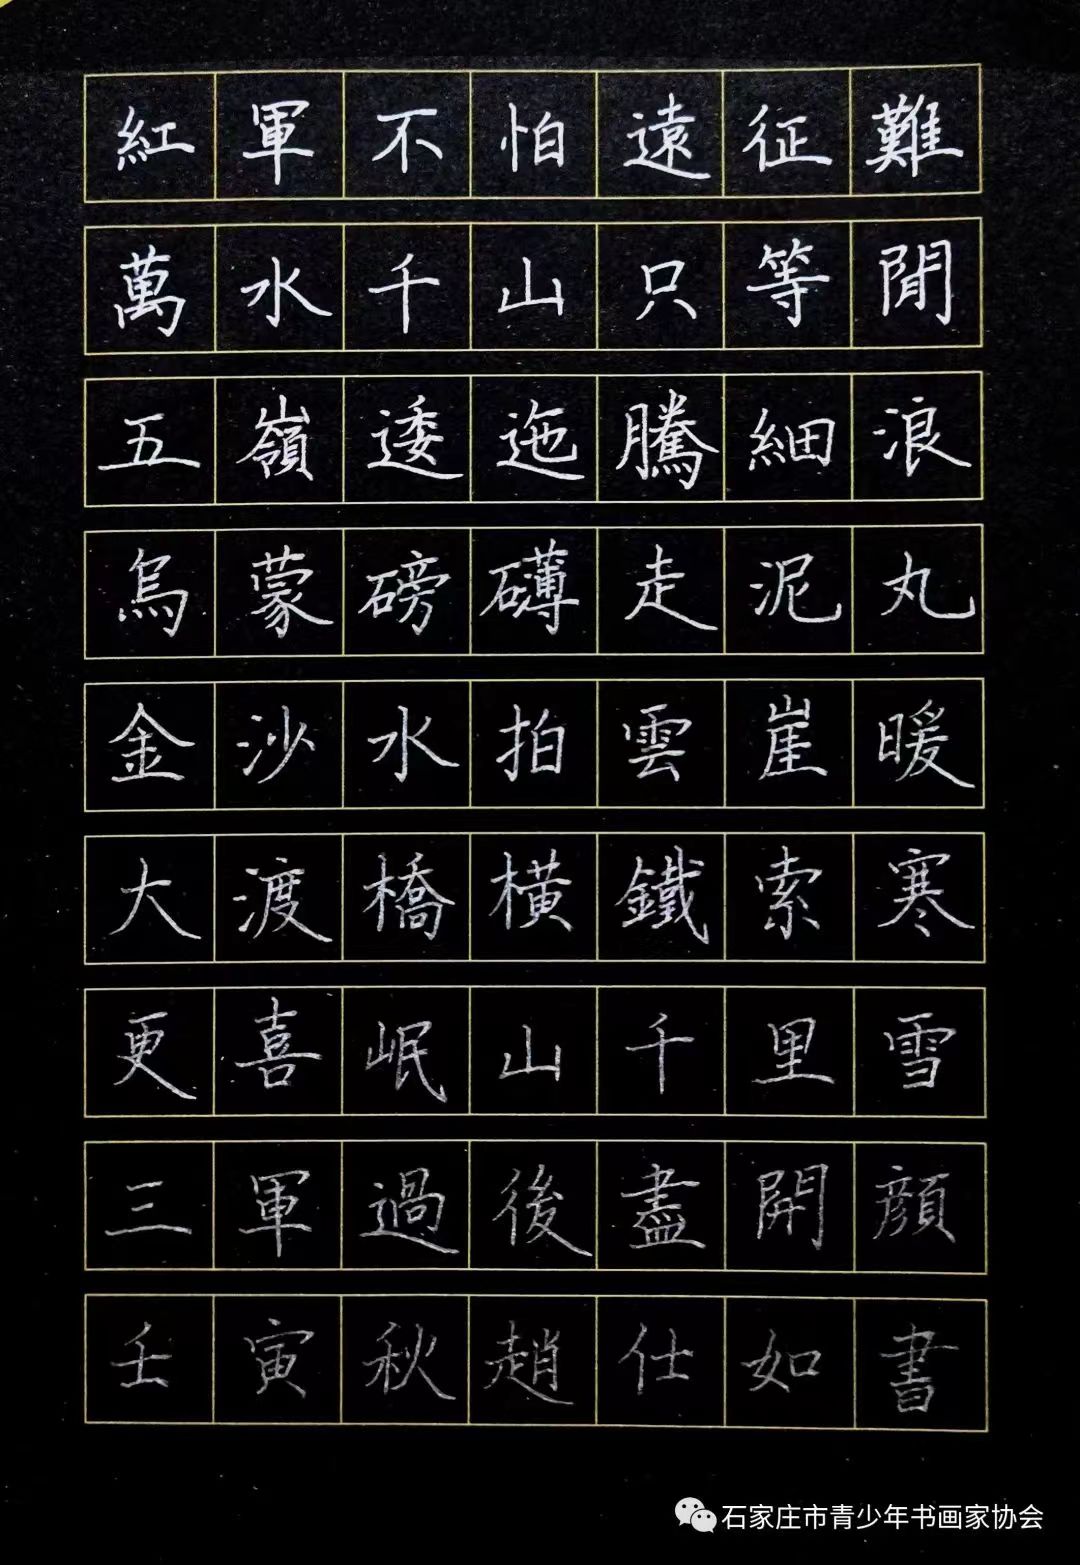 紅軍不怕遠征難
萬水千山只等閒
五嶺逶迤騰細浪
烏蒙磅礴走泥丸
金沙水拍雲崖暖
大渡橋橫鐵索寒
更喜岷山千里雪
三軍過後盡開顔
壬寅秋趙仕如書
石家庄市青少年书画家协会